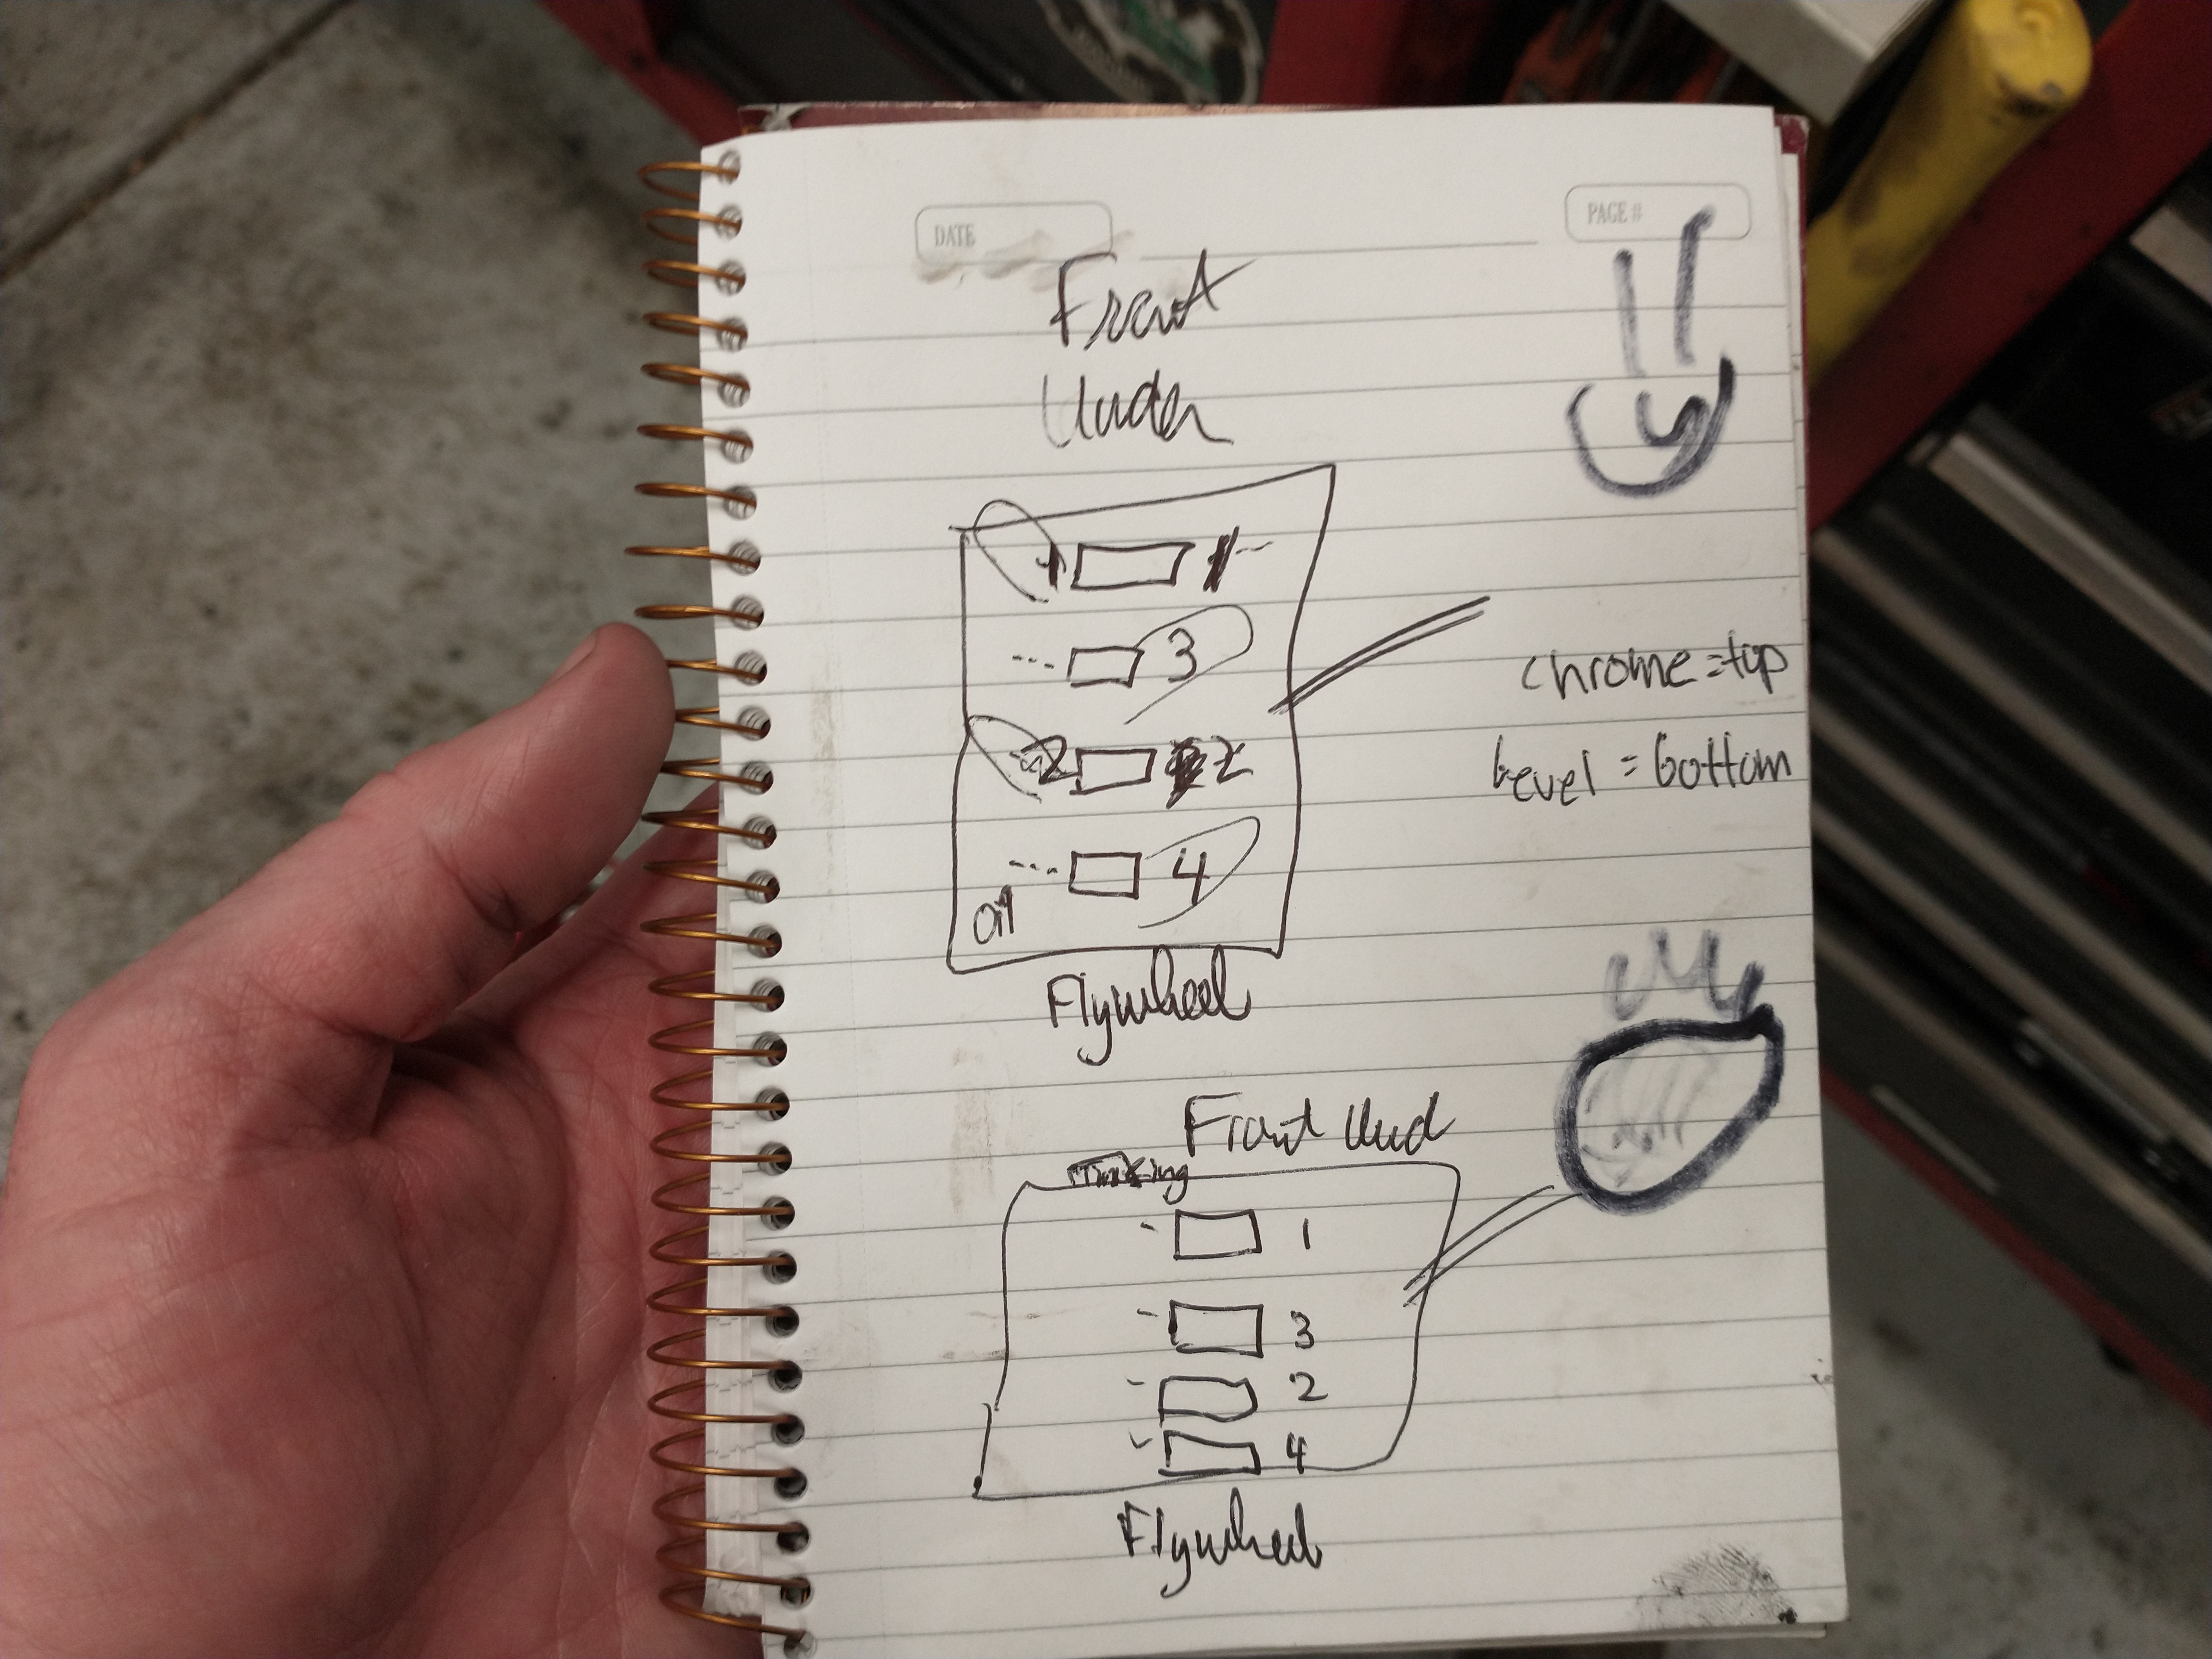 DATE
PAGE #
Front
Under
1 1
3
chrome = top
2 2
bevel = bottom
4
oil
Flywheel
Front Und
1
3
2
4
Flywheel